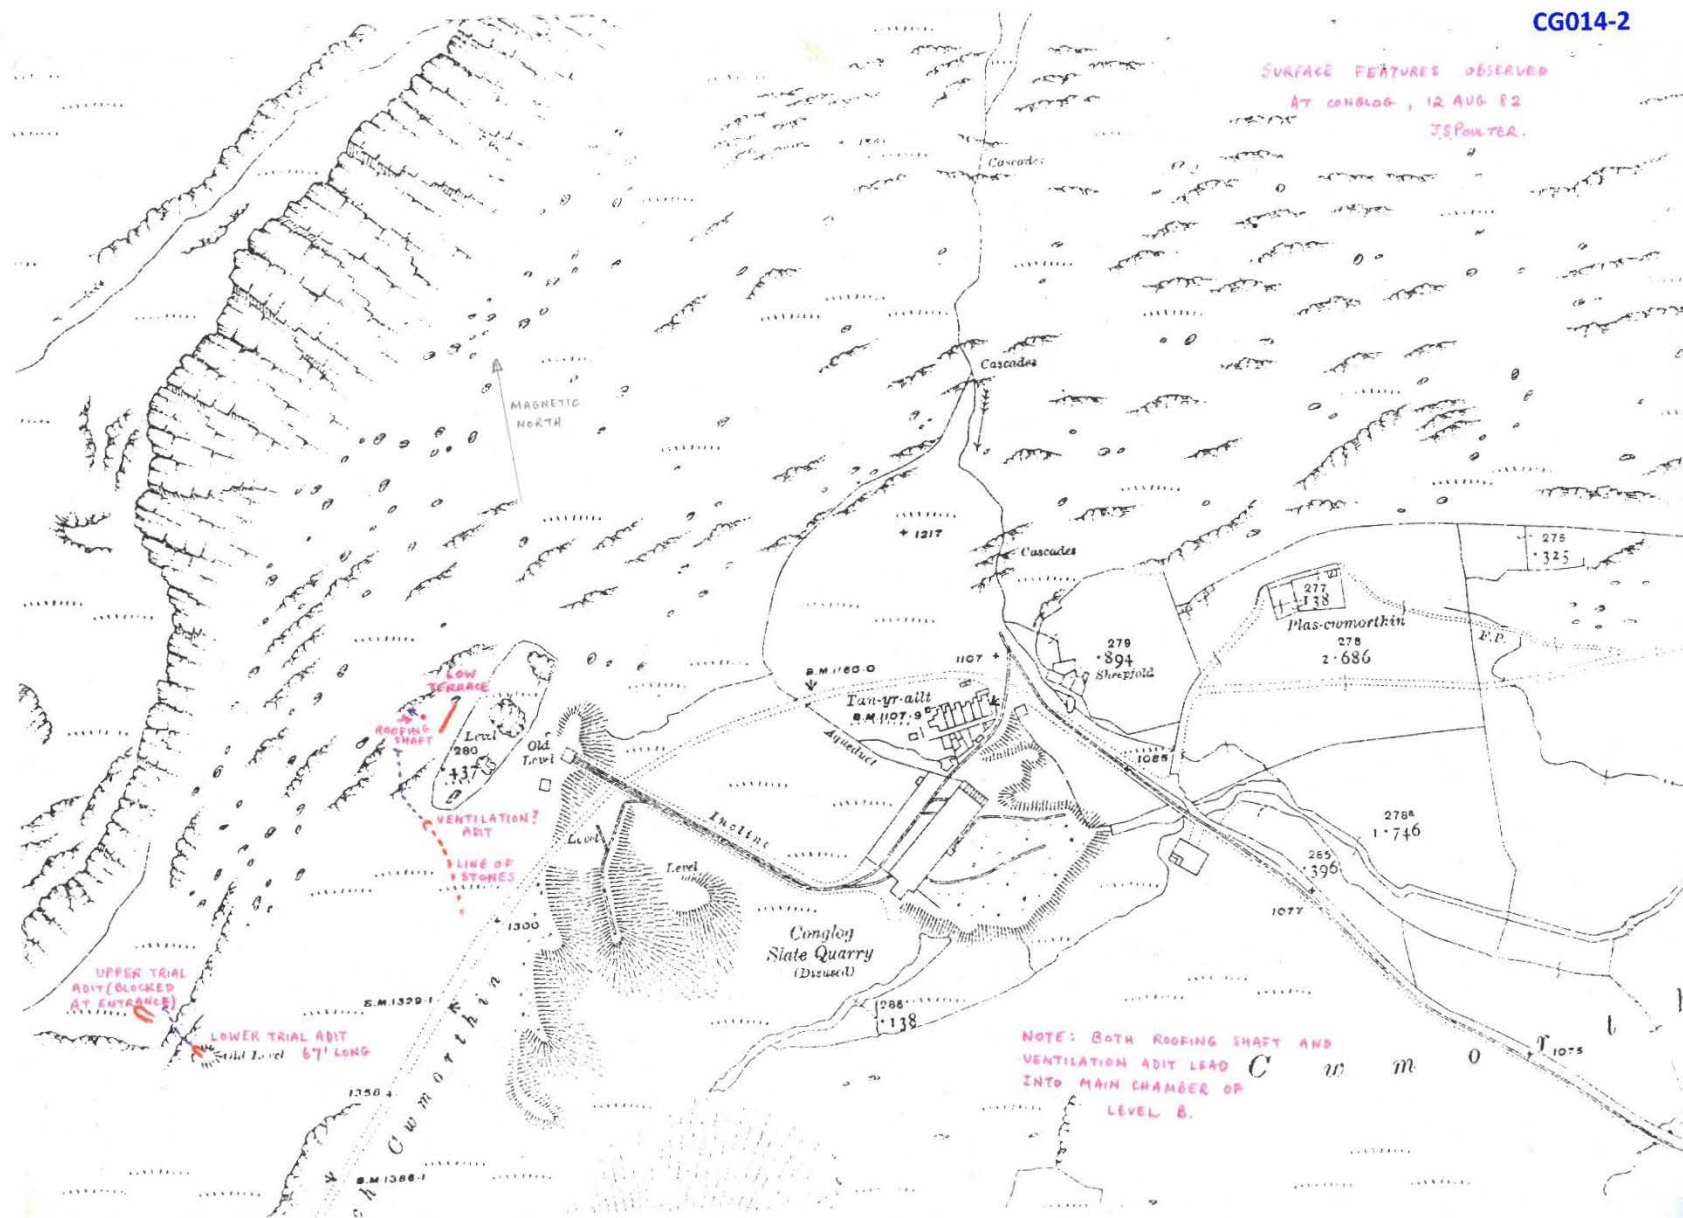 CG014-2
SURFACE FEATURES OBSERVED
AT CONGLOG, 12 AUG 82
J.S.POULTER.
Cascades
Cascades
MAGNETIC
NORTH
+ 1217
Cascades
276
·325
277
·138
Plas-cwmorthin
278
2·686
F.P.
279
·894
Sheepfold
1107 +
B.M.1160·0
Tan-yr-allt
B.M.1107·9
Aqueduct
LOW
TERRACE
ROOFING
SHAFT
Level
280
·437
Old
Level
1085
VENTILATION?
ADIT
Incline
Level
Level
LINE OF
STONES
278a
1·746
265
·396
1077
1300
Conglog
Slate Quarry
(Disused)
UPPER TRIAL
ADIT (BLOCKED
AT ENTRANCE)
B.M.1329·1
286
·138
LOWER TRIAL ADIT
67' LONG
Old Level
NOTE: BOTH ROOFING SHAFT AND
VENTILATION ADIT LEAD
INTO MAIN CHAMBER OF
LEVEL B.
C w m o r t
1075
1358
Cwmorthin
B.M.1386·1